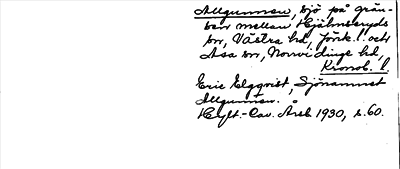 Allgunnen, sjö på grän-
sen mellan Hjälmseryds
sn, Västra hd, Jönk. l. och
Asa sn, Norrvidinge hd,
Kronob. l.
Eric Elgqvist, Sjönamnet
Allgunnen.
Hylt.-Cav. Årsb 1930, s. 60.